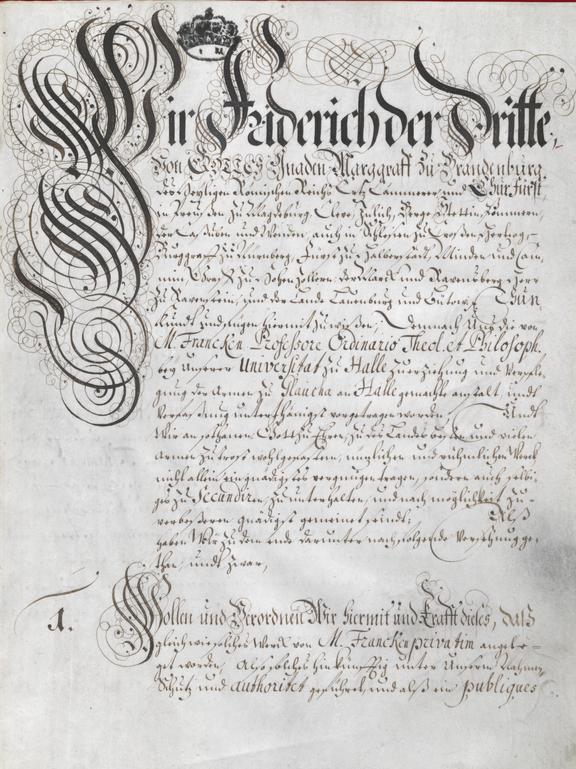 Wir Friderich der Dritte,
Von GOTTES Gnaden Marggraff zu Brandenburg,
des Heyligen Römischen Reichs Ertz Cammerer, und Churfürst
in Preußen zu Magdeburg, Cleve, Jülich, Berge, Stettin, Pommern,
der Caßuben und Wenden, auch in Schlesien zu Croßen Hertzog,
Burggraff zu Nürnberg, Fürst zu Halberstadt, Minden und Camin,
Graff zu Hohen Zollern, der Marck und Ravensberg, Herr
zu Ravenstein, und der Lande Lauenburg und Bütow, Thun
kundt und fügen hiermit zu wißen, Demnach Uns die von
M. Francken Professore Ordinario Theol. et Philosoph.
bey unserer Universität zu Halle zu erziehung und Verpfle-
gung der Armen zu Glaucha an Halle gemachte anstalt, undt
Verfaßung unterthänigst vorgetragen worden, Undt
Wir an sothanen Gott zu Ehren, zu des Landes besten und vielen
Armen zu trost wohlgefasten, nützlichen und rühmlichen Werck
nicht allein ein gnädigstes vergnügen tragen, sondern auch selbi-
ges zu Secundiren, zu unterhalten, und nach möglichkeit zu
verbeßeren gnädigst gemeinet sindt; Alß
haben Wir zu dem ende darunter nachfolgende Versehung ge-
than, undt zwar,
1. Wollen und Verordnen Wir hiermit und Krafft dieses, daß
gleich wie solches Werck von M. Francken privatim angele-
get worden, Also solches hinkünfftig unter Unserm Nahmen
Schutz und authoritet geführet, und alß ein publiques